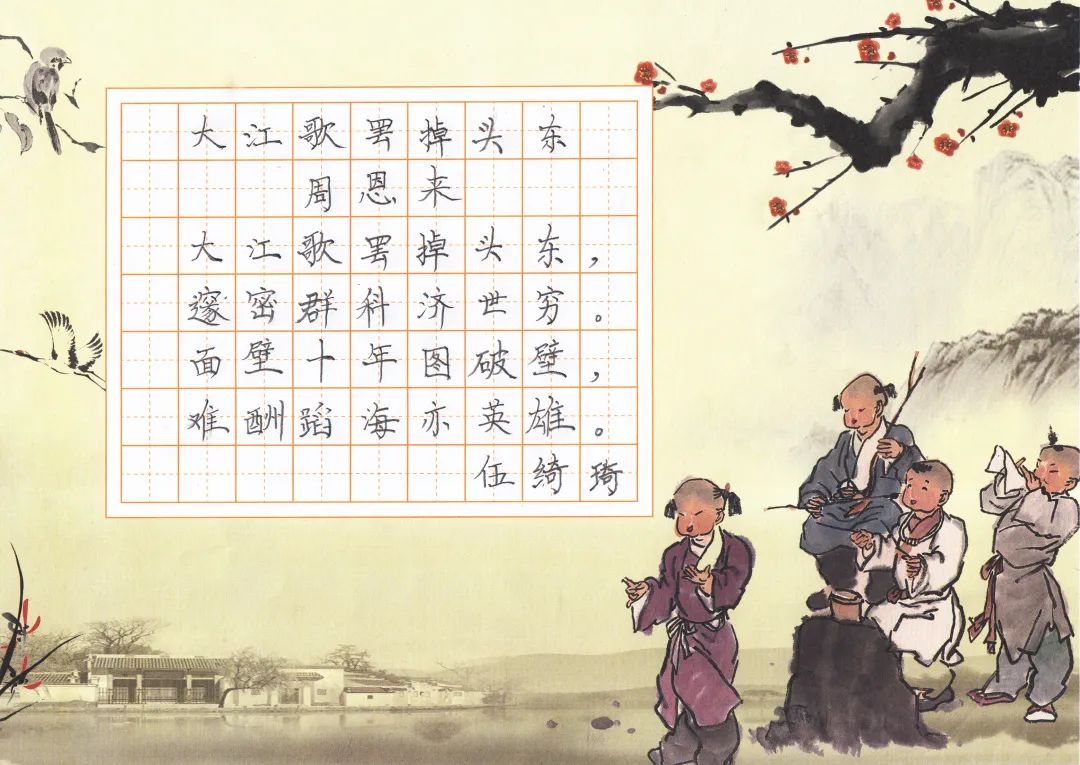 大江歌罢掉头东
周恩来
大江歌罢掉头东，
邃密群科济世穷。
面壁十年图破壁，
难酬蹈海亦英雄。
伍绮琦